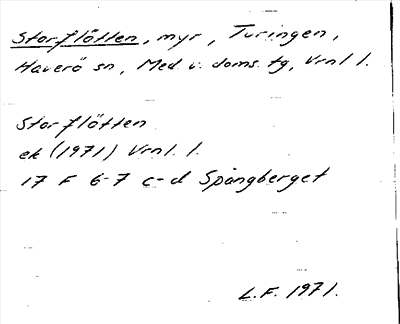 Storflötten, myr, Turingen,
Haverö sn, Med v. doms. tg, Vrnl l.
Storflötten
ek (1971) Vrnl. l.
17 F 6-7 c-d Spångberget
L.F. 1971.